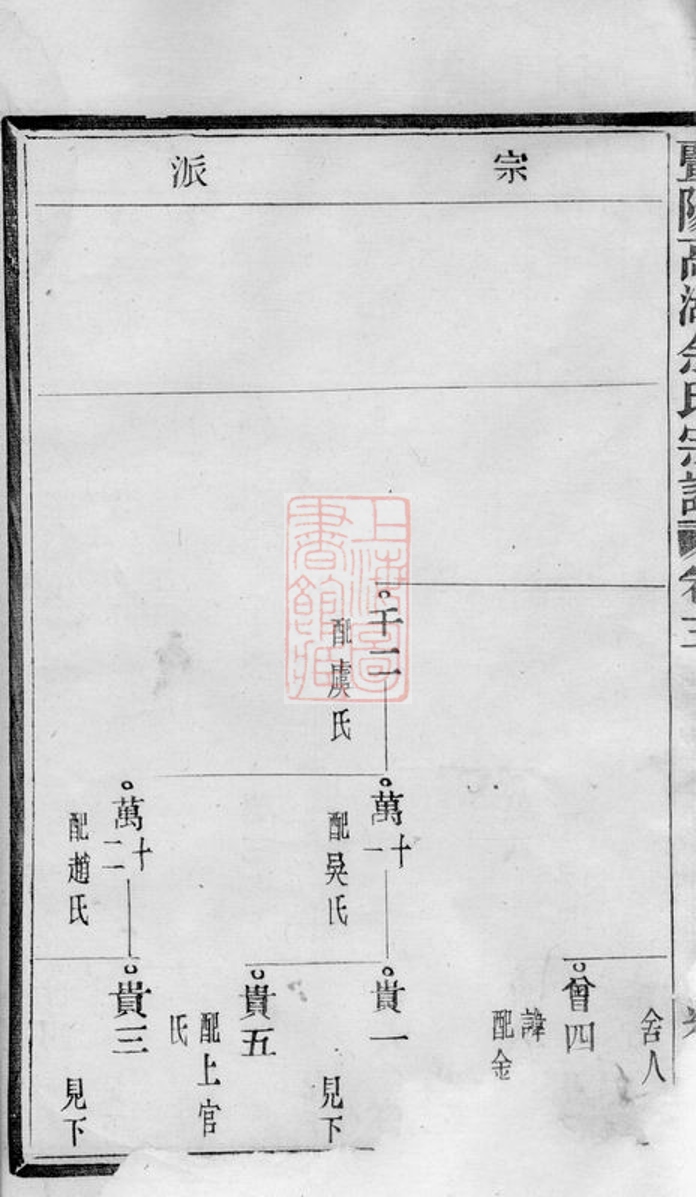 暨陽高湖余氏宗譜 卷三
宗派
舍人
曾四
諱
配金
千二
配虞氏
萬十一
配吳氏
貴一
見下
貴五
配上官
氏
萬十二
配趙氏
貴三
見下
上海圖書館藏